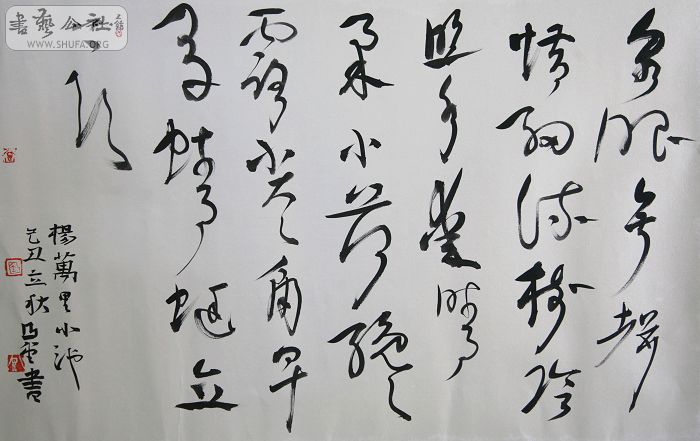 書藝公社
WWW.SHUFA.ORG
泉眼無聲
惜細流樹陰
照水愛晴
柔小荷纔
露尖々角早
有蜻蜓立
上頭
楊萬里小池
己丑立秋書